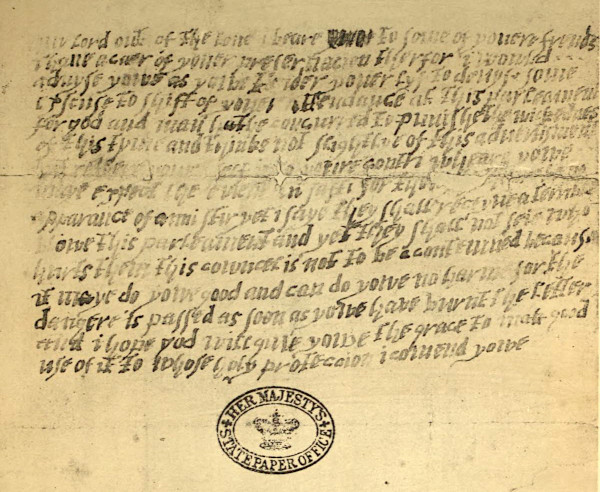 my lord out of the love i beare to some of youere frends
i have a caer of youer preseruacion therfor i would
aduyse yowe as yowe tender youer lyf to deuyse some
excuse to shift of youer attendance at this parleament
for god and man hathe concurred to punishe the wickednes
of this tyme and thinke not slightlye of this aduertisment
youre self into youre contri wheare yowe
maye expect the euent in safti for
apparance of anni stir yet i saye they shall receyue a terrible
blowe this parleament and yet they shall not seie who
hurts them this cowncel is not to be acontemned because
it maye do yowe good and can do yowe no harme for the
dangere is passed as soon as yowe have burnt the letter
and i hope god will giue yowe the grace to mak good
use of it to whose holy proteccion i comend yowe
HER MAJESTY'S
STATE PAPER OFFICE